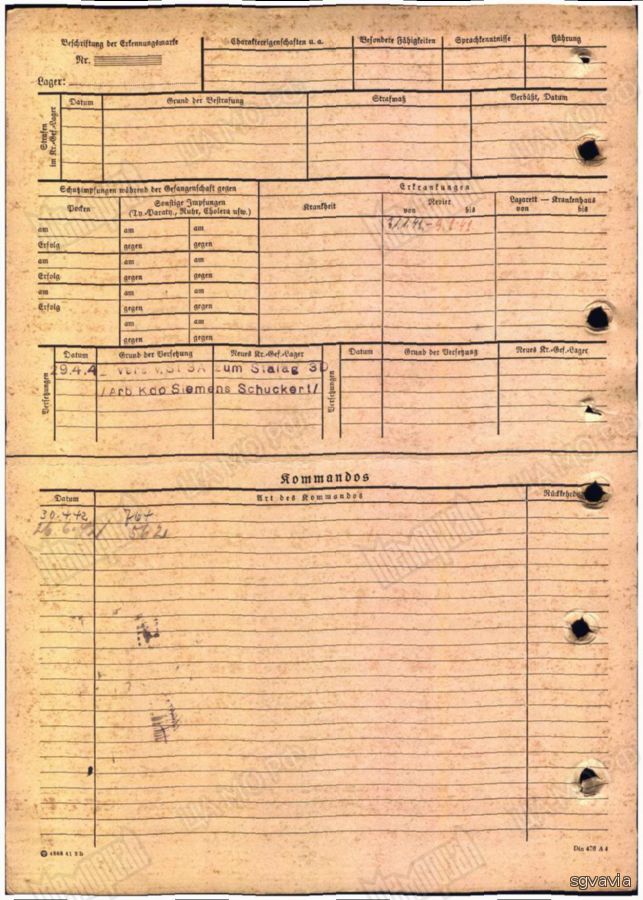 Beschriftung der Erkennungsmarke
Nr.
Lager:
Charaktereigenschaften u. a.
Besondere Fähigkeiten
Sprachkenntnisse
Führung
Strafen im Kr.-Gef.-Lager
Datum
Grund der Bestrafung
Strafmaß
Verbüßt, Datum
Schutzimpfungen während der Gefangenschaft gegen
Erkrankungen
Pocken
Sonstige Impfungen
(Ty.-Paraty., Ruhr, Cholera usw.)
Krankheit
Revier
von bis
Lazarett — Krankenhaus
von bis
am am am
Erfolg gegen gegen
am am am
Erfolg gegen gegen
am am am
Erfolg gegen gegen
am am
gegen gegen
Versetzungen
Datum
Grund der Versetzung
Neues Kr.-Gef.-Lager
Versetzungen
Datum
Grund der Versetzung
Neues Kr.-Gef.-Lager
29.4.4 zum Stalag 3D
/Arb Kdo Siemens Schuckert/
Kommandos
Datum
Art des Kommandos
30.4.42 764
562
4868 41 2 b
Din 476 A 4
МЕМОРИАЛ
ЦАМО РФ
sgvavia